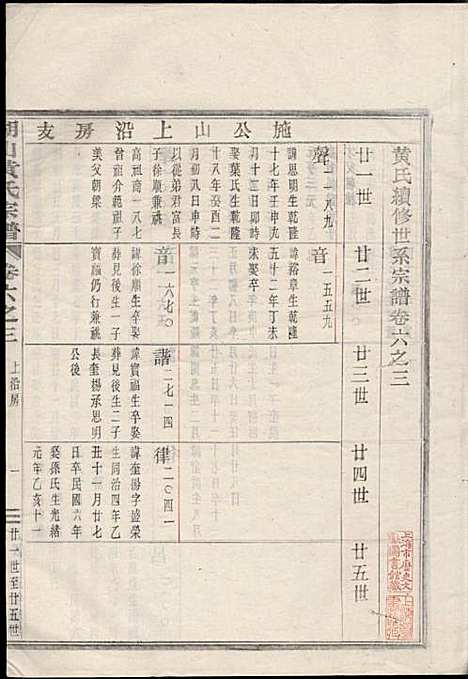 黄氏續修世系宗譜卷六之三
廿一世
廿二世
廿三世
廿四世
廿五世
施公山上沿房支
聲一一八九
諱思明生乾隆
十七年壬申六
月十三日卯時
娶葉氏生乾隆
十八年癸酉八
月初八日申時
以從弟君富長
子徐順兼祧
高祖志一八七
曾祖元範祖子
美父朝梁
音一五五九
諱裕章生乾隆
五十二年丁未
未娶卒
音一六七〇
諱徐順生卒娶
葬見後生一子
寶福仍行兼祧
諧二七一四
諱寶福生卒娶
葬見後生二子
長奎揚承思明
公後
律二一〇四一
諱奎揚字盛榮
生同治四年乙
丑十一月廿七
日卒民國六年
娶孫氏生光緒
元年乙亥十一
山黄氏宗譜
卷六之三
上沿房
一
廿一世至廿五世
上海市歷史文
獻圖書館藏